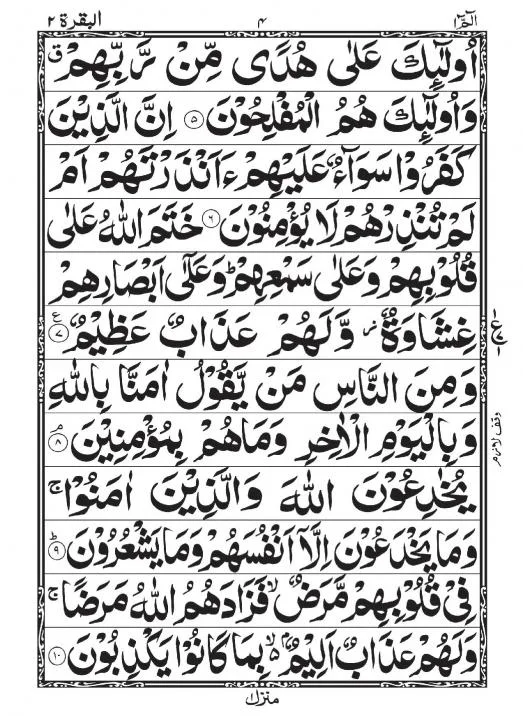 الٓمّٓ ۱ ۴ البقرة ۲
اُولٰٓئِكَ عَلٰى هُدًى مِّنْ رَّبِّهِمْ ۗ
وَاُولٰٓئِكَ هُمُ الْمُفْلِحُوْنَ ۵ اِنَّ الَّذِيْنَ
كَفَرُوْا سَوَآءٌ عَلَيْهِمْ ءَاَنْذَرْتَهُمْ اَمْ
لَمْ تُنْذِرْهُمْ لَا يُؤْمِنُوْنَ ۶ خَتَمَ اللّٰهُ عَلٰى
قُلُوْبِهِمْ وَعَلٰى سَمْعِهِمْ ؕ وَعَلٰٓى اَبْصَارِهِمْ
غِشَاوَةٌ ز وَّلَهُمْ عَذَابٌ عَظِيْمٌ ۷ ع
وَمِنَ النَّاسِ مَنْ يَّقُوْلُ اٰمَنَّا بِاللّٰهِ
وَبِالْيَوْمِ الْاٰخِرِ وَمَا هُمْ بِمُؤْمِنِيْنَ ۘ ۸
وقف لازم
يُخٰدِعُوْنَ اللّٰهَ وَالَّذِيْنَ اٰمَنُوْا ۚ
وَمَا يَخْدَعُوْنَ اِلَّاۤ اَنْفُسَهُمْ وَمَا يَشْعُرُوْنَ ؕ ۹
فِيْ قُلُوْبِهِمْ مَّرَضٌ ۙ فَزَادَهُمُ اللّٰهُ مَرَضًا ۚ
وَلَهُمْ عَذَابٌ اَلِيْمٌۢ ۙ بِمَا كَانُوْا يَكْذِبُوْنَ ۱۰
منزل